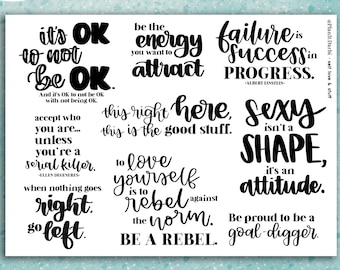 it's OK
to not
be OK.
And it's OK to not be OK
with not being OK.
be the
energy
you want to
attract
failure is
success in
PROGRESS.
-ALBERT EINSTEIN-
accept who
you are...
unless
you're a
serial killer.
-ELLEN DEGENERES-
this right here,
this is the good stuff.
sexy
isn't a
SHAPE,
it's an
attitude.
when nothing goes
right,
go left.
to love
yourself
is to
rebel against
the norm.
BE A REBEL.
Be proud to be a
goal-digger.
self love & stuff